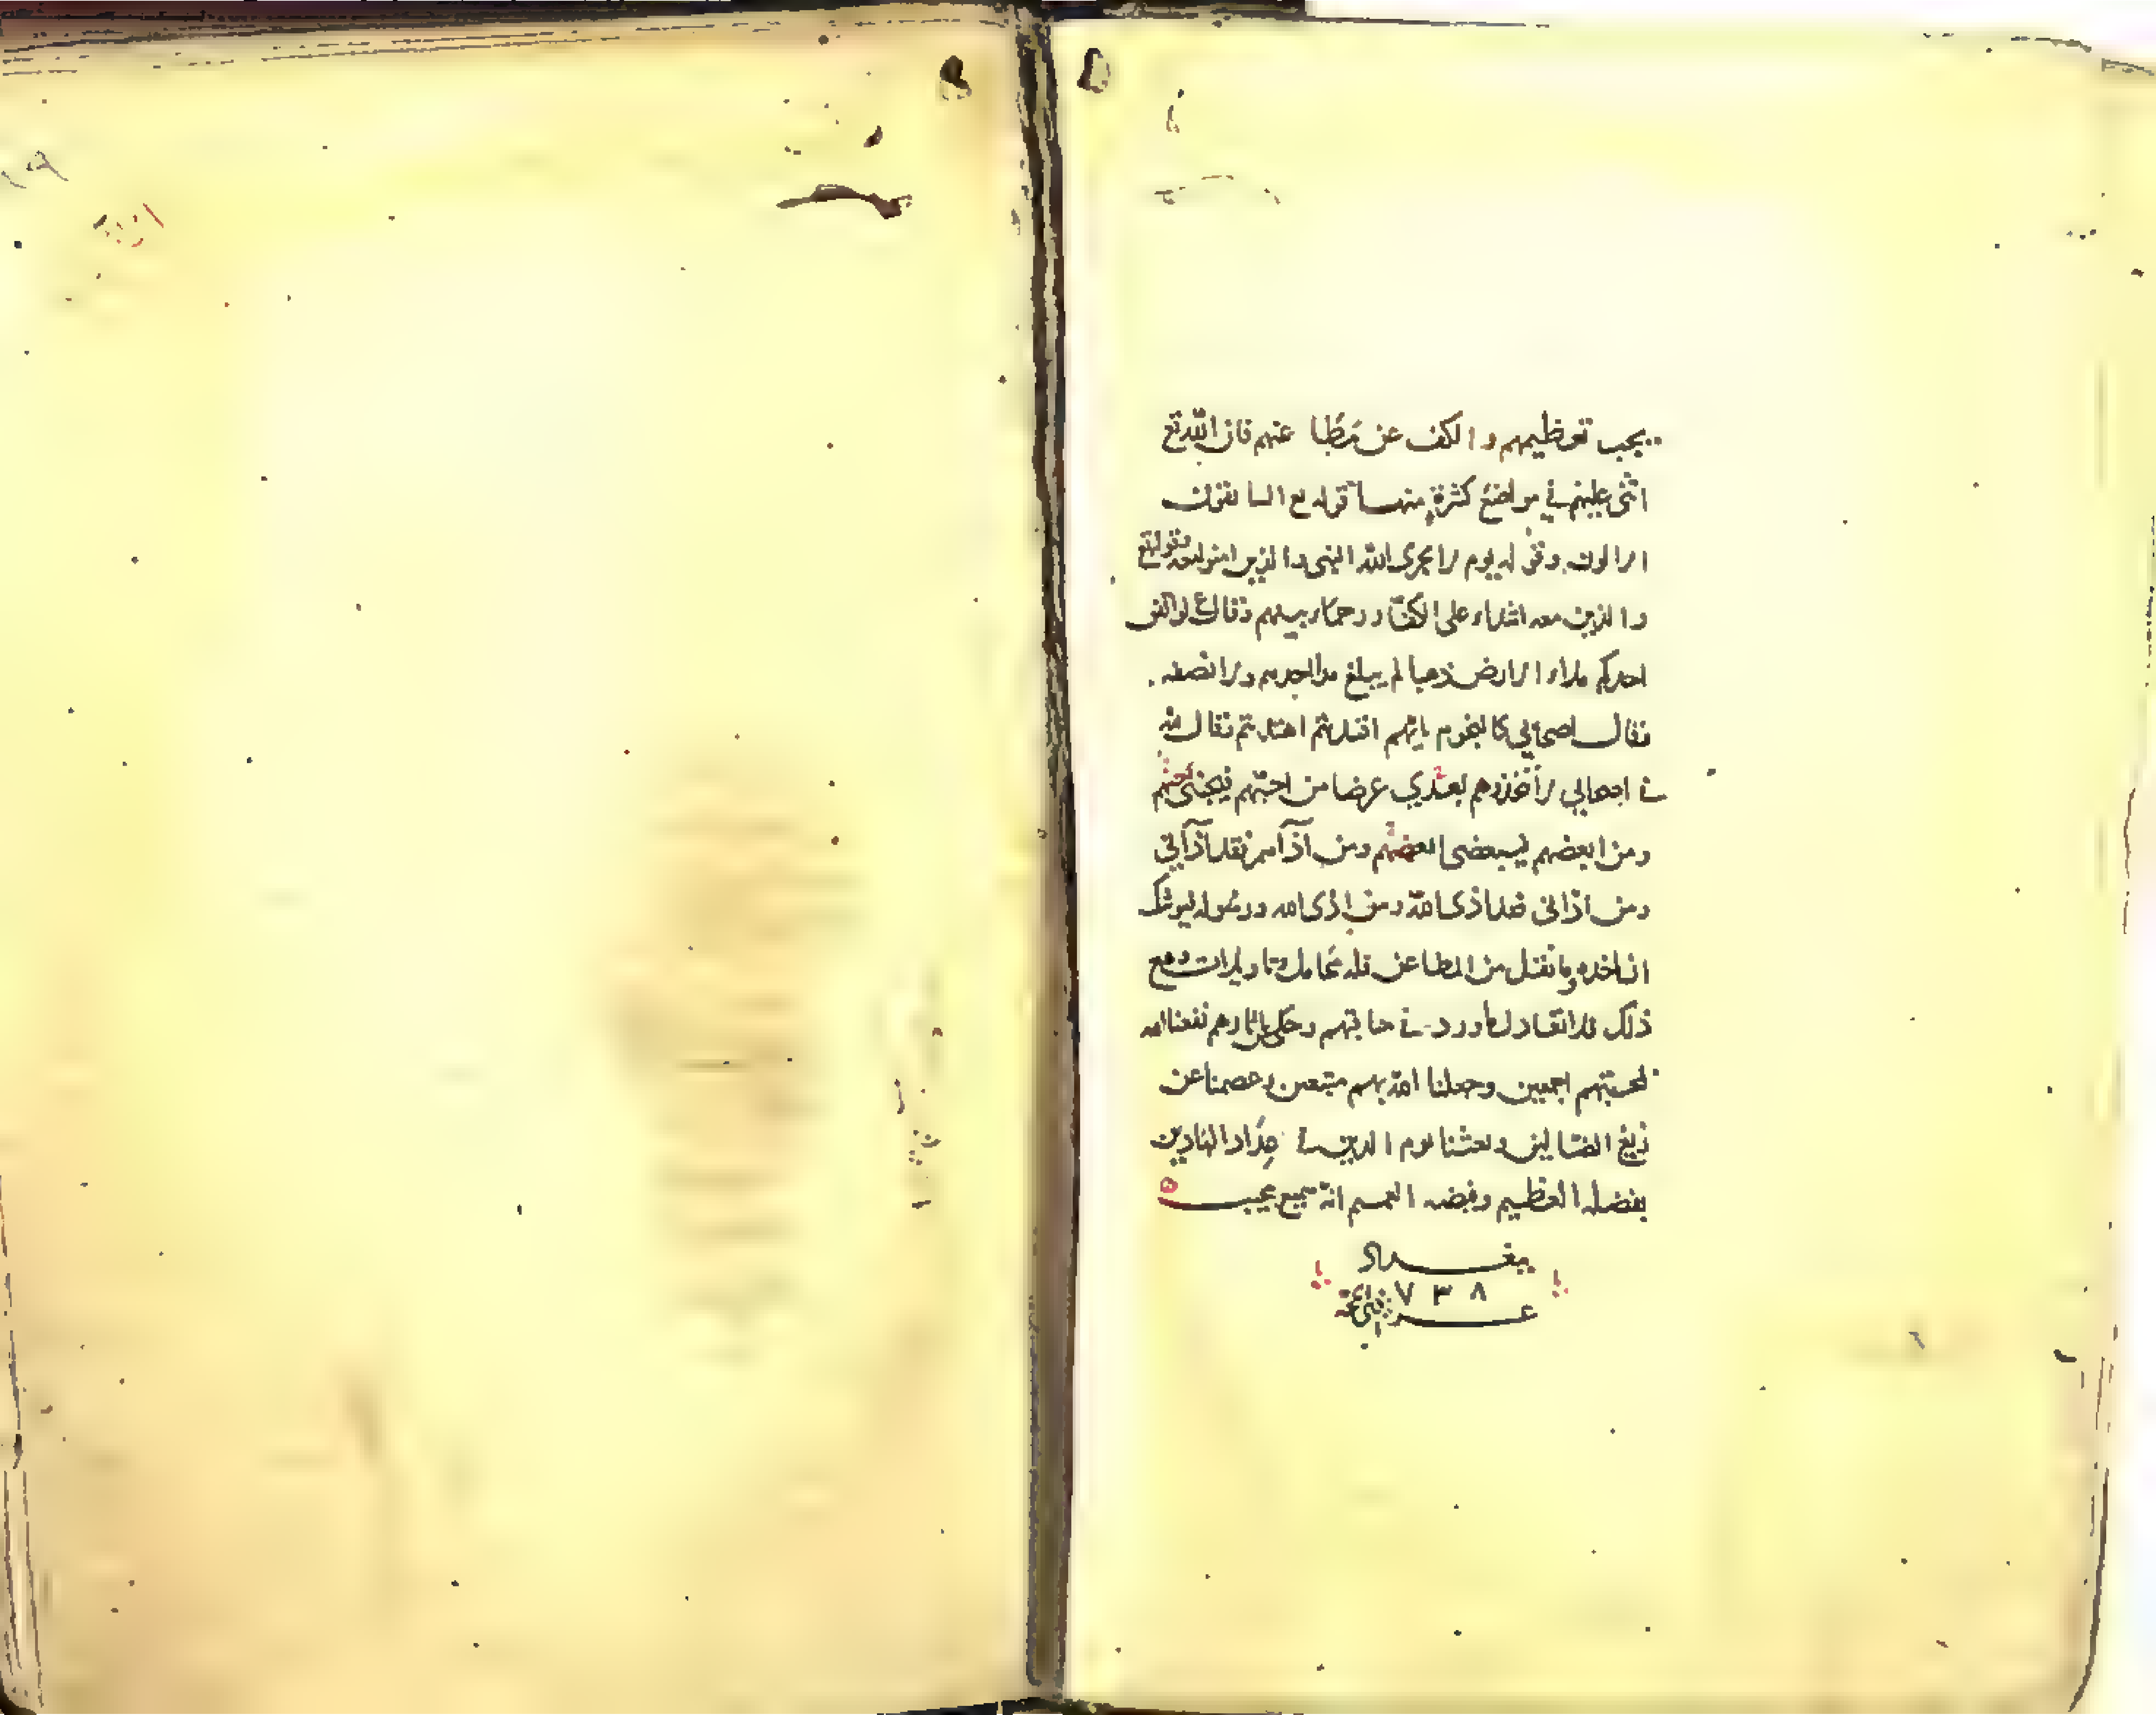 يجب تعظيمهم والكف عن مطا عنهم فان الله تع
اثنى عليهم في مواضع كثرة منها قوله تع السابقون
الاولون وقوله يوم لا يخزى الله النبى والذين امنوا معه وقوله تع
والذين معه اشداء على الكفار رحماء بينهم وقال ع لو انفق
احدكم ملاء الارض ذهبا لم يبلغ مد احدهم ولا نصفه
وقال اصحابي كالنجوم بايهم اقتديتم اهتديتم وقال الله
في اصحابي لا تتخذوهم بعدي غرضا من احبهم فبحبى احبهم
ومن ابغضهم فببغضى ابغضهم ومن آذآهم فقد آذآنى
ومن اذانى فقد اذى الله ومن اذى الله ورسوله فيوشك
ان ياخذه وما نقل من المطاعن فله محامل وتاويلات ومع
ذلك فلا تعادل ما ورد في مناقبهم وحكى اثارهم نفعنا الله
لمحبتهم اجمعين وجعلنا الله بهم متبعين وعصمنا عن
زيغ الضالين وبعثنا يوم الدين في عداد الهادين
بفضله العظيم وفيضه العميم انه سميع مجيب
ببغداد
٧٣٨